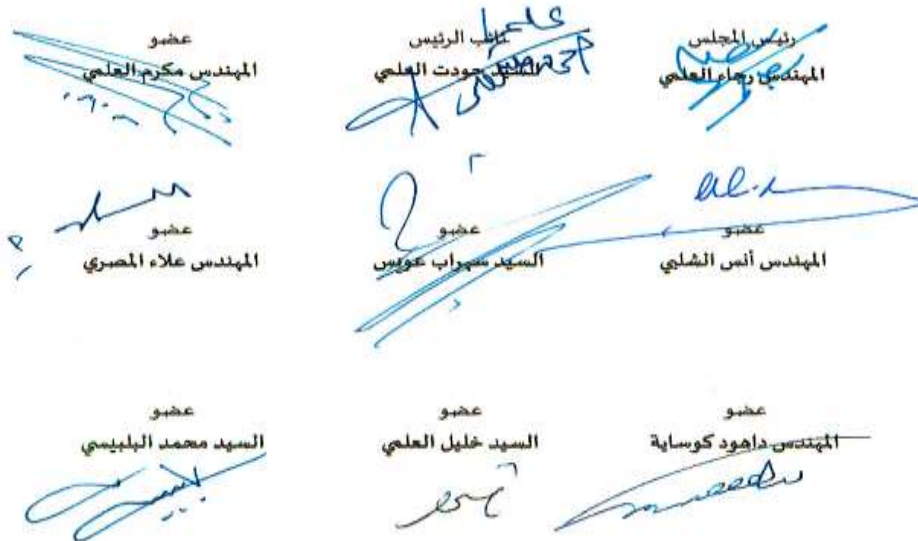 رئيس المجلس
المهندس رجاء العلمي
نائب الرئيس
السيد جودت العلمي
عضو
المهندس مكرم العلمي
عضو
المهندس أنس الشلبي
عضو
السيد سهراب عويس
عضو
المهندس علاء المصري
عضو
المهندس داهود كوساية
عضو
السيد خليل العلمي
عضو
السيد محمد البلبيسي